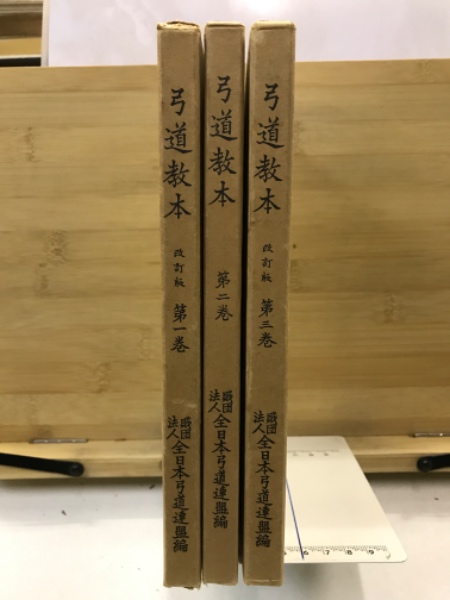 弓道教本 改訂版 第一巻 財団法人 全日本弓道連盟編
弓道教本 第二巻 財団法人 全日本弓道連盟編
弓道教本 改訂版 第三巻 財団法人 全日本弓道連盟編
6 7 8 9